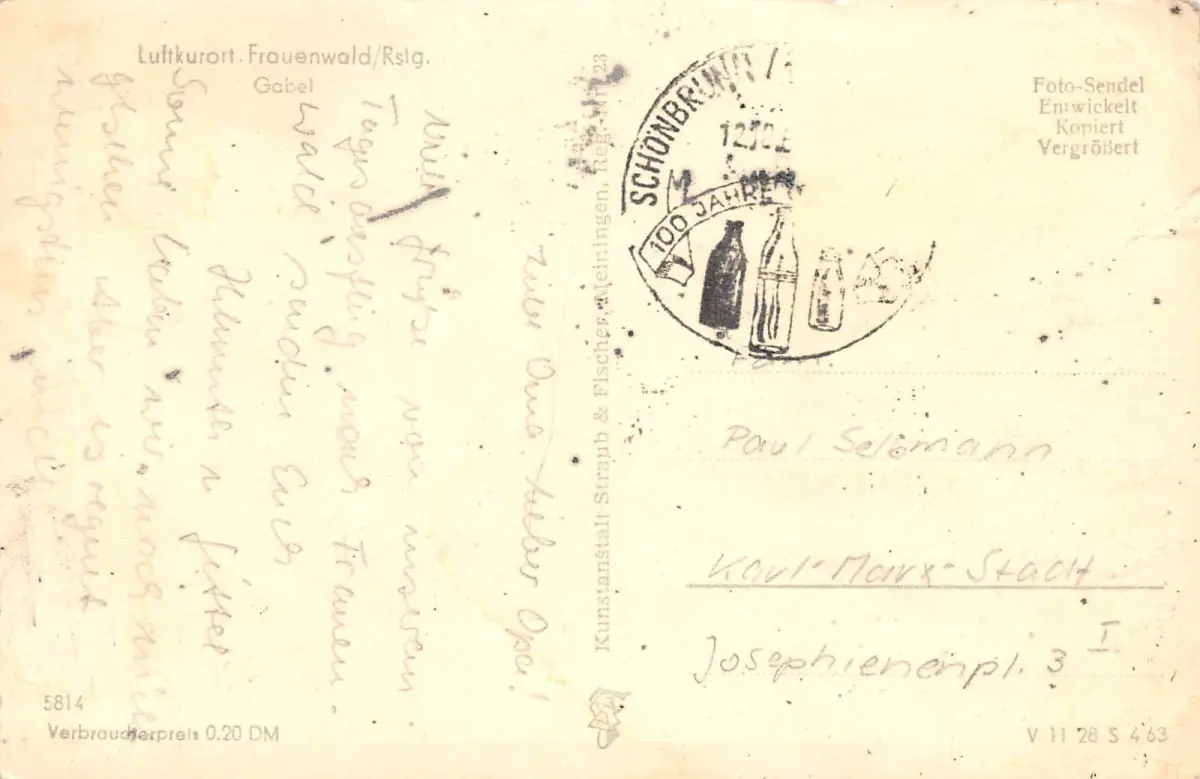 Luftkurort Frauenwald/Rstg.
Gabel
Liebe Oma, Lieber Opa!
Viele Grüße von unserem
Tagesausflug nach Frauen-
wald senden Euch
Helmuter u.
Sonne haben wir noch nicht
gesehen Aber es regnet
wenigstens nicht.
5814
Verbraucherpreis 0.20 DM
Kunstanstalt Straub & Fischer, Meiningen, Reg.-Nr. 23
SCHÖNBRUNN
100 JAHRE
Foto-Sendel
Entwickelt
Kopiert
Vergrößert
Fam.
Paul Selbmann
Karl-Marx-Stadt
Josephienenpl. 3 I
V 11 28 S 4 63